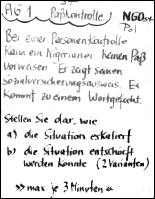 AG 1 Paßkontrolle NGO
Pol
Bei einer Personenkontrolle
kann ein Nigerianer keinen Paß
vorweisen. Er zeigt seinen
Sozialversicherungsausweis. Es
kommt zu einem Wortgefecht.
Stellen Sie dar, wie
a) die Situation eskaliert
b) die Situation entschärft
werden könnte (2 Varianten)
» max je 3 Minuten «